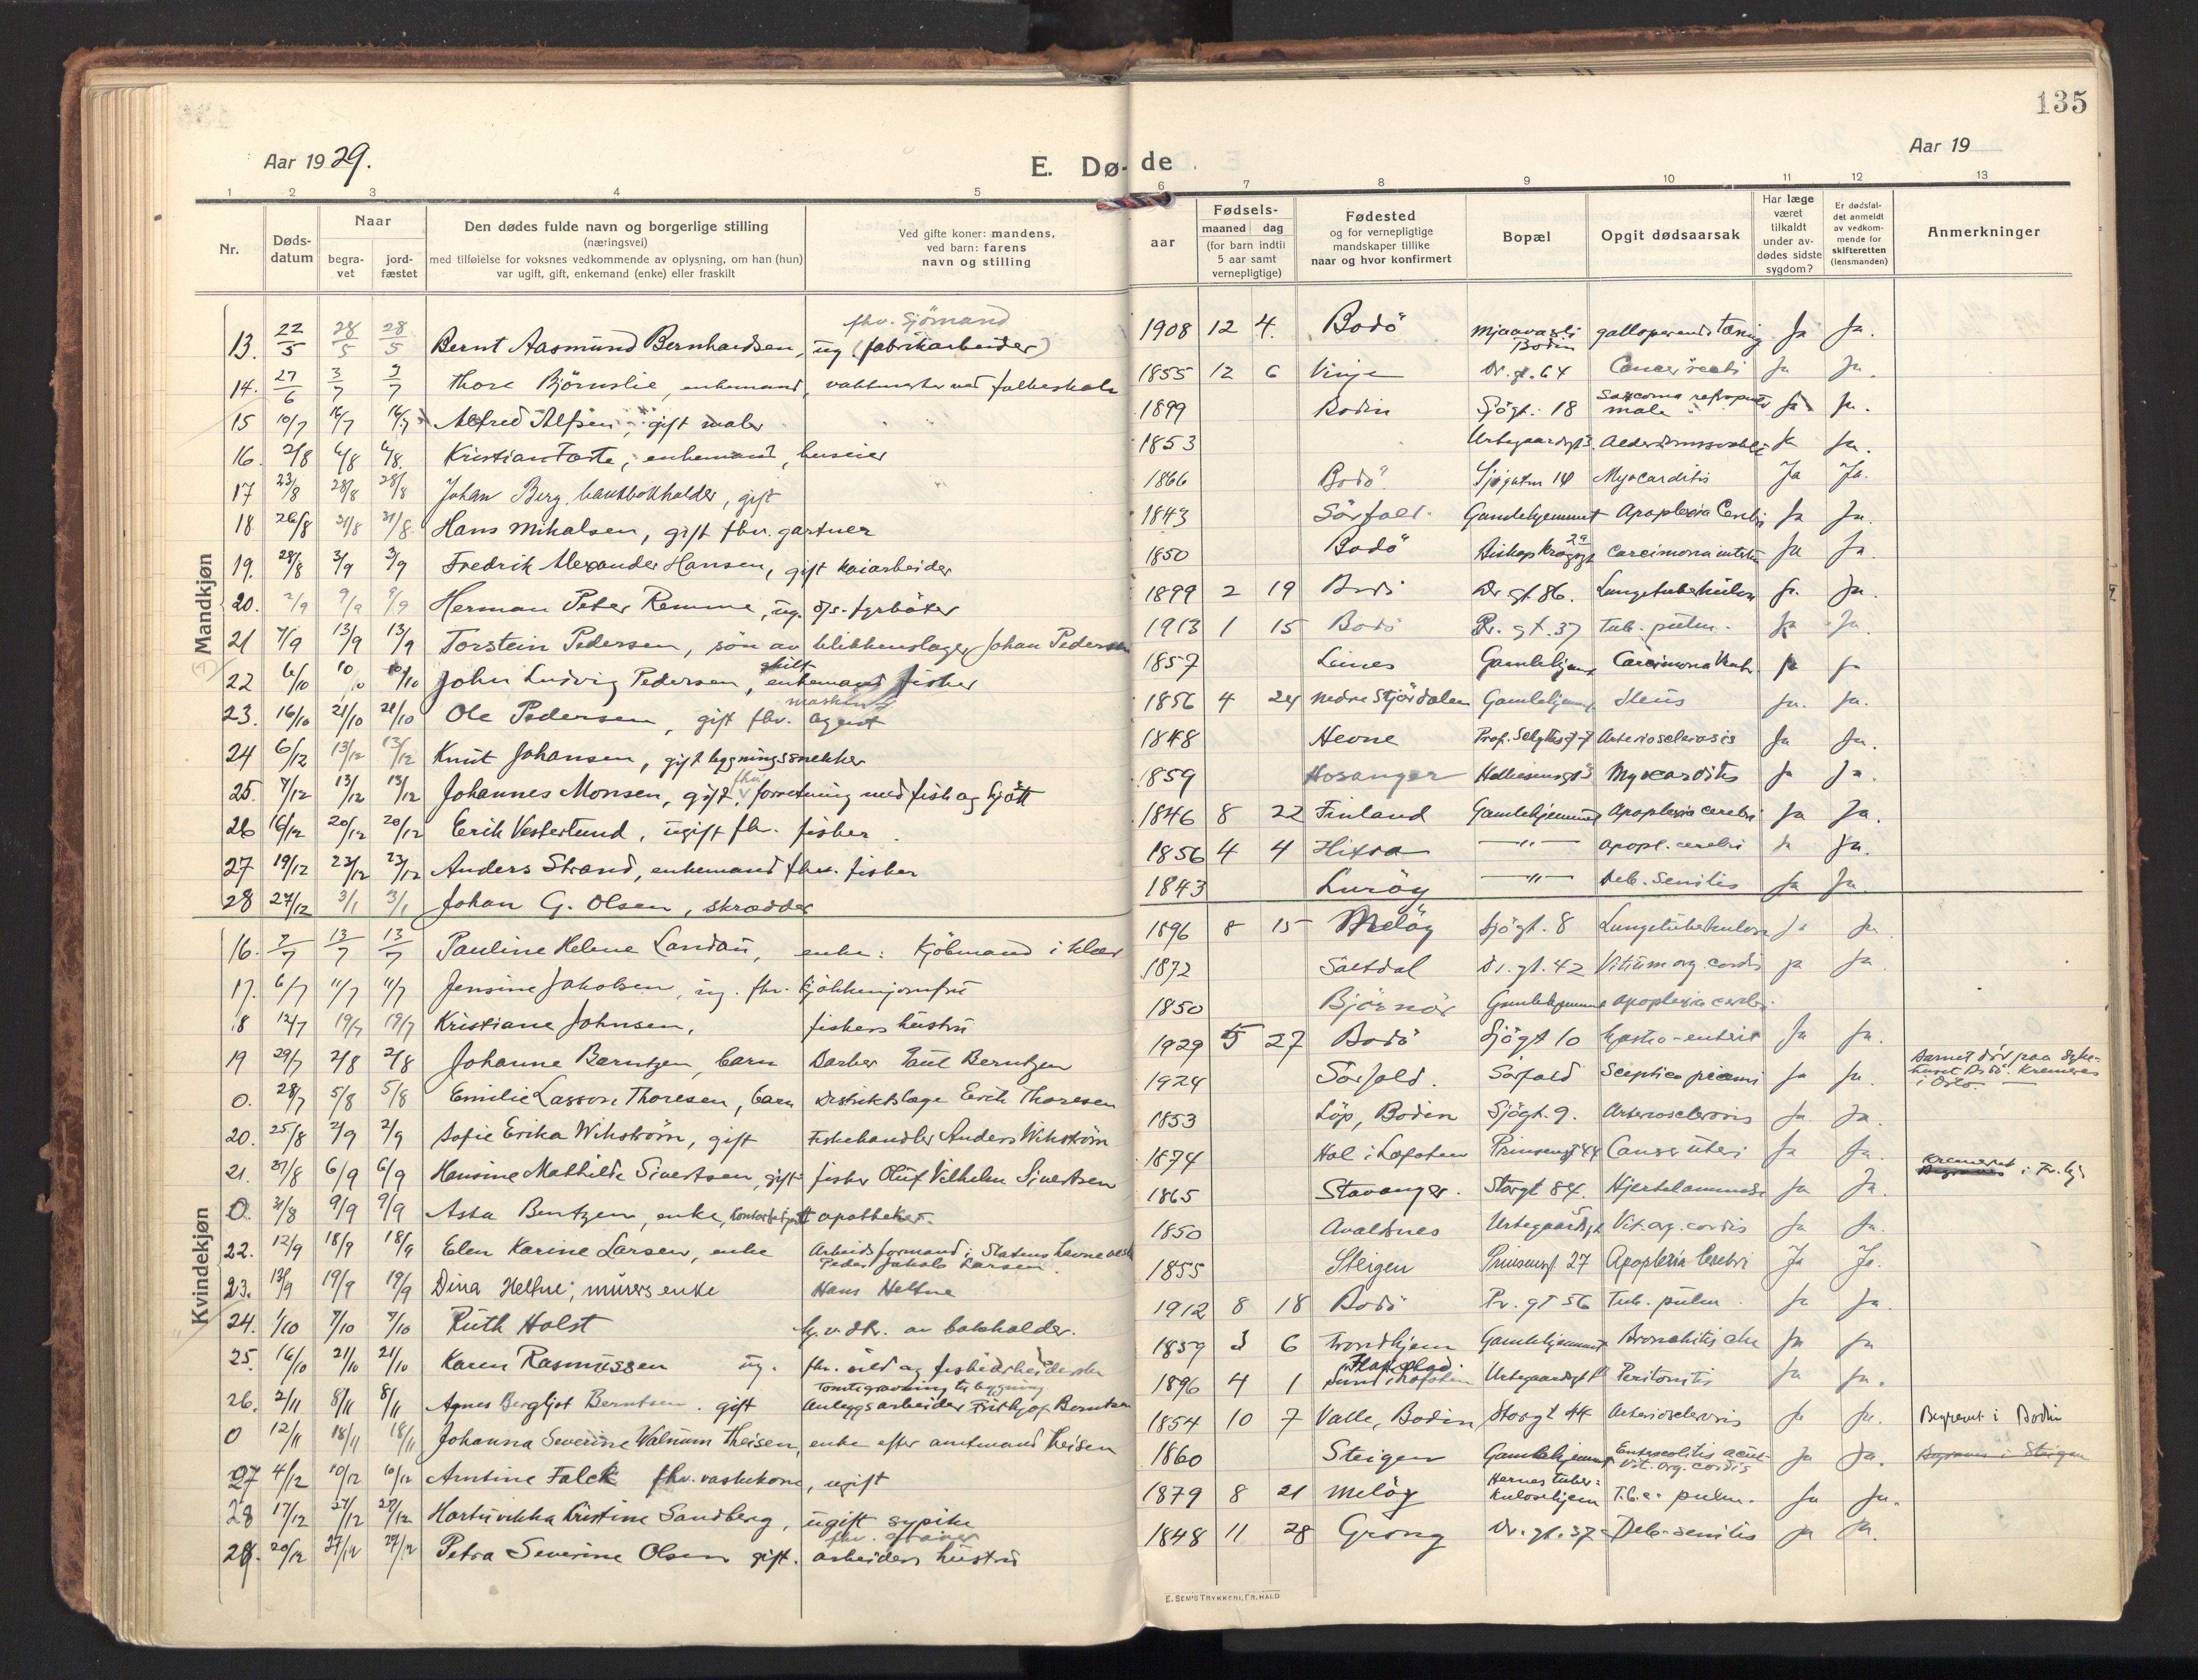 135
Aar 1929.
Aar 19
E. Dø- de
1 2 3 4 5 6 7 8 9 10 11 12 13
Nr.
Døds-
datum
Naar
begra-
vet
jord-
fæstet
Den dødes fulde navn og borgerlige stilling
(næringsvei)
med tilføielse for voksnes vedkommende av oplysning, om han (hun)
var ugift, gift, enkemand (enke) eller fraskilt
Ved gifte koner: mandens,
ved barn: farens
navn og stilling
Fødsels-
aar
maaned dag
(for barn indtil
5 aar samt
vernepligtige)
Fødested
og for vernepligtige
mandskaper tillike
naar og hvor konfirmert
Bopæl
Opgit dødsaarsak
Har læge
været
tilkaldt
under av-
dødes sidste
sygdom?
Er dødsfal-
det anmeldt
av vedkom-
mende for
skifteretten
(lensmanden)
Anmerkninger
Mandkjøn
fhv. Sjömand
13. 22/5 28/5 28/5 Bernt Aasmund Bernhardsen, ug (fabrikarbeider) 1908 12 4. Bodö Bodin Ja Ja.
14. 27/6 3/7 3/7 Thore Björnslie, enkemand, vaktmester ved folkeskole 1855 12 6 Vinje Dr. gt. 64 Cancer recti Ja Ja.
15 10/7 16/7 16/7 Alfred Alfsen, gift maler 1899 Bodin Sjögt. 18 Sarcoma Ja Ja.
16. 2/8 6/8 6/8. Kristian Forte, enkemand, huseier 1853 Ja Ja.
17 23/8 28/8 28/8 Johan Berg. bankbokholder, gift 1866 Bodö Sjøgaten 14 Myocarditis Ja Ja.
18 26/8 31/8 31/8 Hans Mikalsen, gift fhv. gartner 1843 Sörfold. Gamlehjemmet Apoplexia Cerebri Ja Ja.
19. 28/8 3/9 3/9 Fredrik Alexander Hansen, gift kaiarbeider 1850 Bodö Ja Ja.
20. 2/9 9/9 9/9 Herman Peter Remme, ug. d/s. fyrböter 1899 2 19 Bodö Dr gt. 86. Lungetuberkulose Ja. Ja.
21 7/9 13/9 13/9 Torstein Pedersen, sön av blikkenslager Johan Pedersen 1913 1 15 Bodö Pr. gt. 37 Tub. pulm. Ja Ja.
skilt
22 6/10 10 10/10 John Ludvig Pedersen, enkemand fisker 1857 Leines Gamlehjem Ja Ja
maskin
23. 16/10 21/10 21/10 Ole Pedersen, gift fhv. agent 1856 4 24 Nedre Stjørdalen Gamlehjem Ileus Ja. Ja.
24 6/12 13/12 13/12 Knut Johansen, gift bygningssnekker 1848 Hevne Arteriosclerosis Ja Ja.
fhv.
25. 7/12 13/12 13/12 Johannes Monsen, gift, forretning med fisk og kjött 1859 Hosanger Myocarditis Ja Ja.
26 16/12 20/12 20/12 Erik Vesterlund, ugift fhv. fisker. 1846 8 22 Finland Gamlehjemmet Apoplexia cerebri Ja Ja.
27 19/12 23/12 23/12 Anders Strand, enkemand fhv. fisker 1856 4 4 Hitra —"— Apopl. cerebri Ja Ja.
28 27/12 3/1 3/1 Johan G. Olsen, skrædder 1843 Luröy —"— Deb. Senilis Ja Ja.
Kvindekjøn
16. 7/7 13/7 13/7 Pauline Helene Landau, enke: Kjöbmand i klær 1896 8 15 Melöy Sjögt. 8 Lungetuberkulose Ja Ja
17. 6/7 11/7 11/7 Jensine Jakobsen, ug. fhv. kjøkkenjomfru 1872 Saltdal Dr. gt. 42 Vitium org. cordis Ja Ja
18 12/7 19/7 19/7 Kristiane Johnsen, fiskers hustru 1850 Björnör Gamlehjemmet apoplexia cerebri.
19 29/7 2/8 2/8 Johanne Berntzen, barn Barber Paul Berntzen 1929 5 27 Bodö Sjögt 10 Gastro-enterit Ja Ja.
0. 28/7 5/8 5/8 Emilie Lasson Thoresen, barn Distriktslæge Erich Thoresen 1924 Sörfold. Sörfold Ja Ja. Barnet dör paa syke-
huset Bodö. Kremeres
i Oslo.
20. 25/8 2/9 2/9 Sofie Erika Wikström, gift Fiskehandler Anders Wikström 1853 Löp, Bodin Sjögt. 9. Arteriosclerosis Ja Ja
21. 31/8 6/9 6/9 Hansine Mathilde Sivertsen, gift fisker Oluf Vilhelm Sivertsen 1874 Hol i Lofoten Prinsensgt 44 Cancer uteri Ja Ja.
0. 31/8 9/9 9/9 Asta Bentzen, enke, apotheker. 1865 Stavanger. Storgt 84. Hjertelammelse Ja Ja. Kremeret i Tr.hj
22. 12/9 18/9 18/9 Elen Karine Larsen, enke Arbeidsformand i Statens havnevesen
Peder Jakob Larsen 1850 Avaldsnes Vit. org. cordis Ja Ja.
23. 13/9 19/9 19/9 Dina Heltne, murers enke Hans Heltne 1855 Steigen Prinsensgt 27 Apoplexia Cerebri Ja Ja.
24. 1/10 7/10 7/10 Ruth Holst hj.v.dtr. av bokholder. 1912 8 18 Bodö Pr. gt 56 Tub. pulm. Ja Ja.
25. 16/10 21/10 21/10 Karen Rasmussen ug. fhv. uld og fiskearbeiderske 1859 3 6 Trondhjem Gamlehjemmet Ja Ja
Tomtegravning til bygning Flakstad
26. 2/11 8/11 8/11 Agnes Bergljot Berntsen. gift anleggsarbeider Frithjof Berntsen 1896 4 1 Sund i Lofoten Peritonitis Ja Ja.
0 12/11 18/11 18/11 Johanna Severine Walnum Theisen, enke efter amtmand Theisen 1854 10 7 Valle, Bodin Storgt 44 Arteriosclerosis Ja Ja. Begravet i Bodin
27 4/12 10/12 10/12 Arntine Falck fhv. vaskekone, ugift 1860 Steigen Gamlehjemmet Enterocolitis acut.
Vit. org. cordis Ja Ja. Begraves i Steigen
28 17/12 27/12 27/12 Hartvikka Kristine Sandberg, ugift sypike 1879 8 21 Melöy Hernes tuber-
kulosehjem T.b.c. pulm. Ja Ja.
fhv. graver
29. 20/12 27/12 27/12 Petra Severine Olsen gift. arbeiders hustru 1848 11 28 Grong Dr. gt. 37 Deb. senilis Ja Ja.
E. SEM'S TRYKKERI, FR.HALD